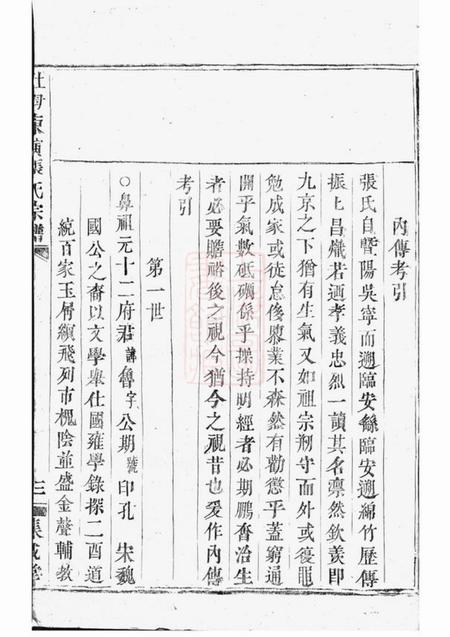 內傳考引
張氏自暨陽吳寧而遡臨安繇臨安遡綿竹歷傳
振上昌熾若迺孝義忠烈一讀其名凛然欽羡即
九京之下猶有生氣又如祖宗剏守而外或復黽
勉成家或徒怠後隳業不森然有勸懲乎蓋窮通
關乎氣數砥礪係乎操持明經者必期鵬奮治生
者必要贍裕後之視今猶今之視昔也爰作內傳
考引
第一世
○鼻祖元十二府君諱魯字公期號印孔 宋魏
國公之裔以文學舉仕國雍學錄探二酉道
統百家玉屑繽飛列市槐陰並盛金聲輔教
東演張氏宗譜
三
集成堂